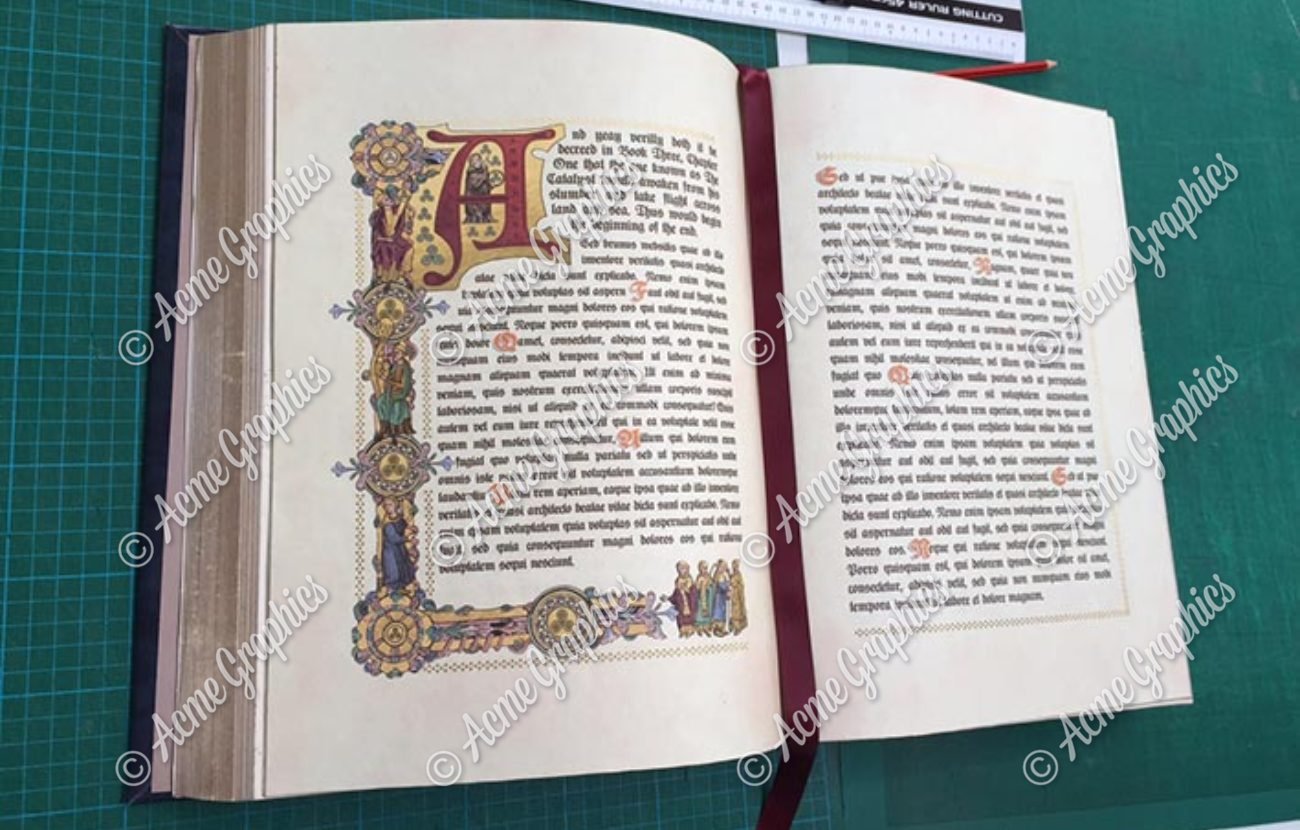 CUTTING RULER 45
And yeay verilly doth it be
decreed in Book Three, Chapter
One that the one known as The
Catalyst awaken from his
slumber and take flight across
land sea. Thus would begin
the beginning of the end.
Sed brunus websilis quae ab illo
inventore veritatis quasi architecto
vitae dicta sunt explicabo. Nemo enim ipsam
voluptas sit aspern Faut odit aut fugit, sed
consequuntur magni dolores eos qui ratione voluptatem
sequi nesciunt. Neque porro quisquam est, qui dolorem ipsum
dolore Qamet, consectetur, adipisci velit, sed quia non
numquam eius modi tempora incidunt ut labore et dolore
magnam aliquam quaerat voluptatem. Ut enim ad minima
veniam, quis nostrum ullam corporis suscipit
laboriosam, nisi ut aliquid commodi consequatur? Quis
autem vel eum iure qui in ea voluptate velit esse
quam nihil Allum qui dolorem eum
fugiat quo voluptas nulla pariatu sed ut perspiciatis unde
omnis iste error sit voluptatem accusantium doloremque
rem aperiam, eaque ipsa quae ab illo inventore
veritatis quasi architecto beatae vitae dicta sunt explicabo. Nemo
enim ipsam voluptatem quia voluptas sit aspernatur aut odit aut
fugit, sed quia consequuntur magni dolores eos qui ratione
voluptatem sequi nesciunt.
Sed ut pur illo inventore veritatis et quasi
architecto beatae vitae dicta sunt explicabo. Nemo enim ipsam
voluptatem quia voluptas sit aspernatur aut odit aut fugit, sed
quia consequuntur magni dolores eos qui ratione voluptatem
sequi Neque porro quisquam est, qui dolorem ipsum
sit amet, consectetur, Nquam, quaer quia non
numquam eius modi tempora incidunt ut labore et dolore
magnam aliquam quaerat voluptatem ut enim ad minima
veniam, quis nostrum exercitationem ullam corporis suscipit
laboriosam, nisi ut aliquid ex ea commodi consequatur? Quis
autem vel eum iure reprehenderit qui in ea velit esse
quam nihil molestiae consequatur, vel illum qui dolorem eum
fugiat quo voluptas nulla pariatu sed ut perspiciatis
unde omnis iste natus error sit voluptatem accusantium
doloremque totam rem aperiam, eaque ipsa quae ab
illo inventore veritatis et quasi architecto beatae vitae dicta sunt
explicabo. Nemo enim ipsam voluptatem quia voluptas sit
aspernatur aut odit aut fugit, sed quia consequuntur magni
dolores eos qui ratione voluptatem sequi nesciunt. Sed et por
ipsa quae ab illo inventore veritatis et quasi architecto
dicta sunt explicabo. Nemo enim ipsam voluptatem quia voluptas
sit aspernatur aut odit aut fugit, sed quia consequuntur magni
dolores eos. Neque qui ratione voluptatem nesciunt.
Porro quisquam est, qui dolorem ipsum dolor sit amet,
consectetur, adipisci velit, sed quia non numquam eius modi
tempora labore et dolore magnam.
© Acme Graphics
© Acme Graphics
© Acme Graphics
© Acme Graphics
© Acme Graphics
© Acme Graphics
© Acme Graphics
© Acme Graphics
© Acme Graphics
© Acme Graphics
© Acme Graphics
© Acme Graphics